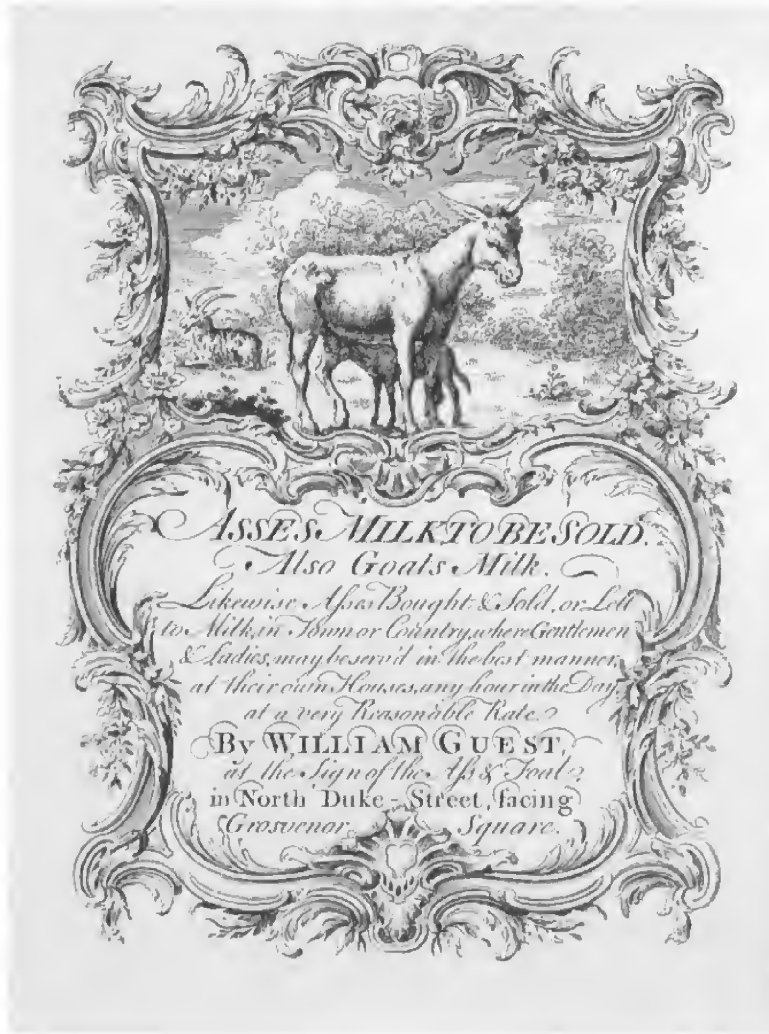 ASSES MILK TO BE SOLD.
Also Goats Milk.
Likewise Asses Bought & Sold, or Lett
to Milk, in Town or Country, where Gentlemen
& Ladies, may be serv'd in the best manner,
at their own Houses, any hour in the Day
at a very Reasonable Rate.
By WILLIAM GUEST,
at the Sign of the Ass & Foal,
in North Duke-Street, facing
Grosvenor Square.